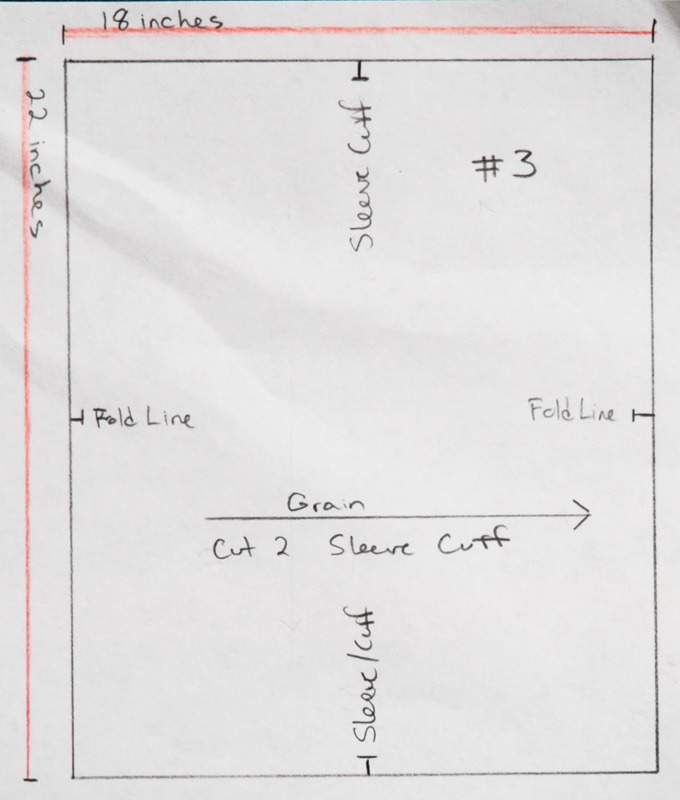 18 inches
22 inches
Sleeve Cuff
#3
Fold Line
Fold Line
Grain
Cut 2 Sleeve Cuff
Sleeve/Cuff